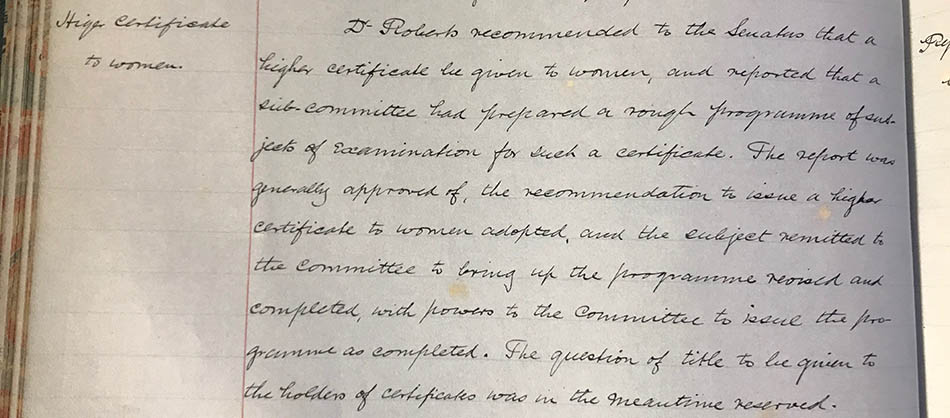 Higer Certificate
to women.
Dr Roberts recommended to the Senatus that a
higher certificate be given to women, and reported that a
sub-committee had prepared a rough programme of sub-
jects of Examination for such a certificate. The report was
generally approved of, the recommendation to issue a higher
certificate to women adopted, and the subject remitted to
the committee to bring up the programme revised and
completed, with powers to the Committee to issue the pro-
gramme as completed. The question of title to be given to
the holders of certificates was in the meantime reserved.